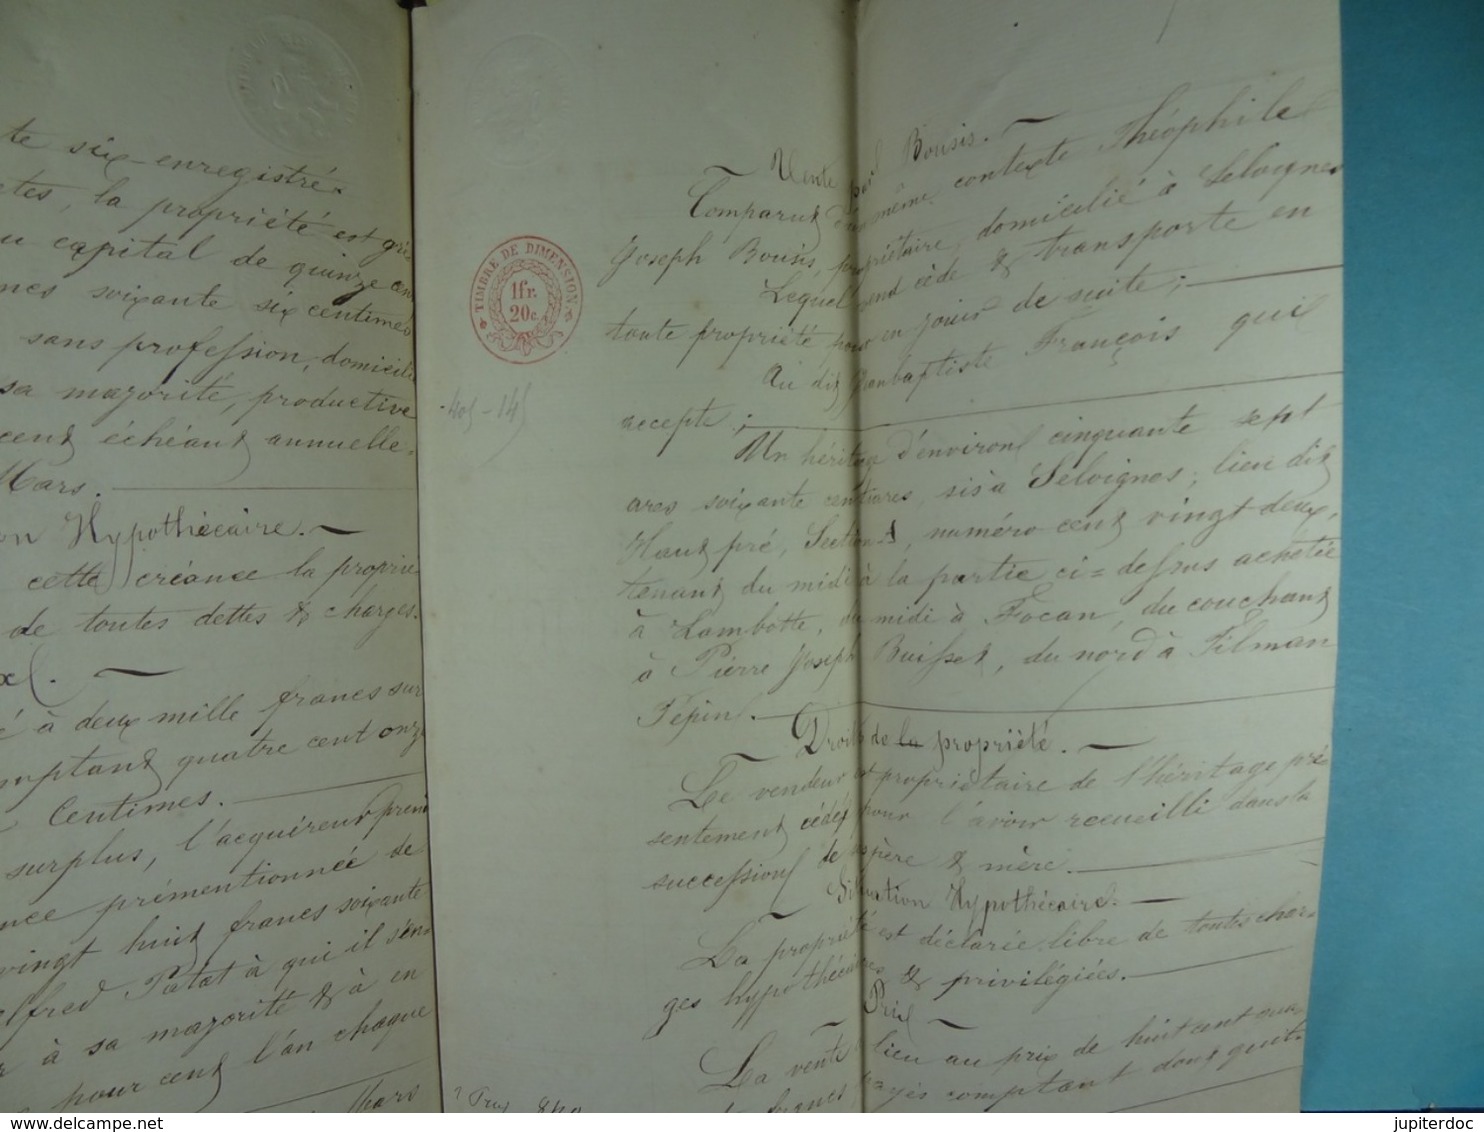 te six enregistré
etes, la propriété est gré
u capital de quinze cen
nes soixante six centimes
sans profession, domicilié
sa majorité, productive
cent échéant annuelle-
Mars.
on Hypothécaire.
cette créance la proprié
de toutes dettes & charges.
é à deux mille francs sur
mptant quatre cent onze
Centimes.
surplus, l'acquéreur prend
nce prémentionnée de
vingt huit francs soixante
lfred Patat à qui il s'en
r à sa majorité & à en
pour cent l'an chaque
Mars
TIMBRE DE DIMENSION
1fr.
20c.
405-145
Vente par Bousis.
Comparut d'un même contexte Théophile
Joseph Bousis, propriétaire, domicilié à Seloignes
Lequel vend cède & transporte en
toute propriété pour en jouir de suite;
Au dit Jean baptiste François qui
accepte;
Un héritage d'environ cinquante sept
ares soixante centiares, sis à Seloignes, lieu dit
Haut pré, Section A, numéro cent vingt deux,
tenant du midi à la partie ci=dessus achetée
à Lambotte, du midi à Focan, du couchant
à Pierre Joseph Buisset, du nord à Filman
Pépin.
Droits de la propriété.
Le vendeur est propriétaire de l'héritage pré-
sentement cédé pour l'avoir recueilli dans la
succession de ses père & mère.
Situation Hypothécaire.
La propriété est déclarée libre de toutes char-
ges hypothécaires & privilégiées.
Prix
La vente a lieu au prix de huit cent qua-
francs payés comptant dont quit-
Prix 840
jupiterdoc